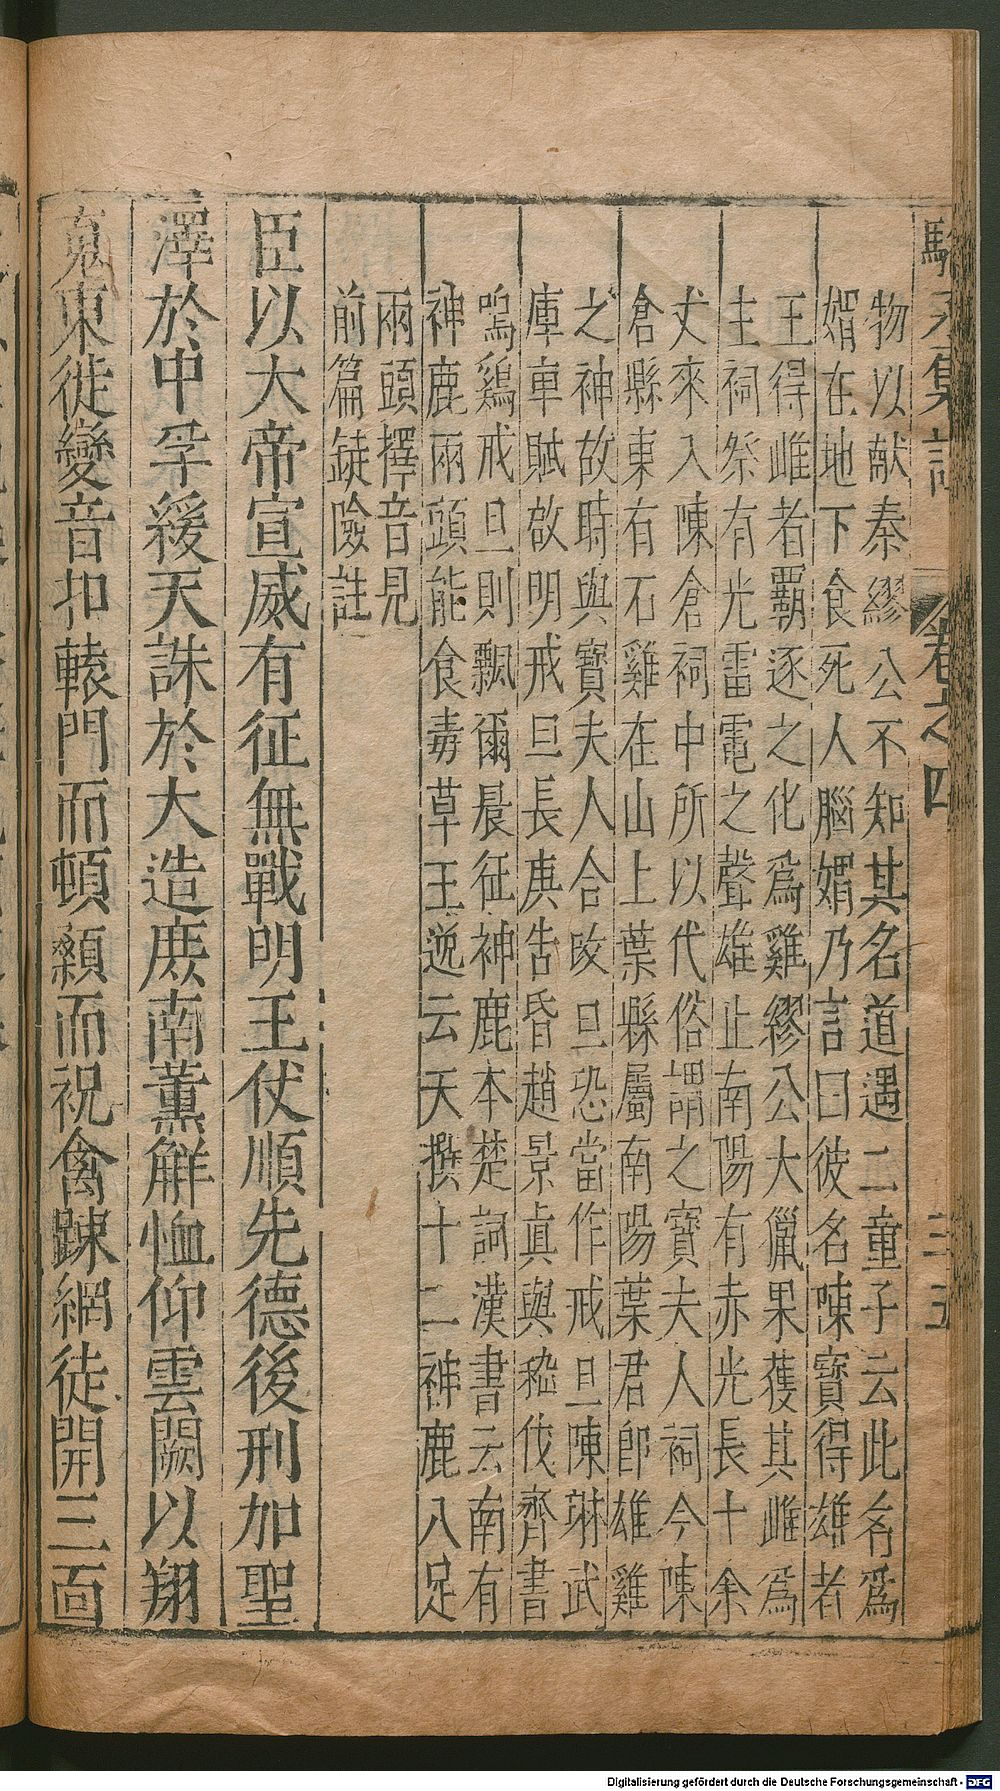 物以献秦繆公不知其名道遇二童子云此名為
媦在地下食死人腦媦乃言曰彼名陳寶得雄者
王得雌者覇逐之化爲雞繆公大獵果獲其雌爲
主祠祭有光雷電之聲雄止南陽有赤光長十余
丈來入陳倉祠中所以代俗謂之寶夫人祠今陳
倉縣東有石雞在山上葉縣屬南陽葉君即雄雞
之神故時與寶夫人合改旦恐當作戒旦陳琳武
庫車賦故明戒旦長庚告昏趙景眞與嵇伐齊書
鳴鷄戒旦則飄爾晨征神鹿本楚詞漢書云南有
神鹿兩頭能食毒草王逸云天撰十二神鹿八足
兩頭擇音見
前篇鋌險註
臣以大帝宣威有征無戰明王伏順先德後刑加聖
澤於中孚緩天誅於大造庶南薫解慍仰雲闕以翔
䰟東徙變音扣轅門而頓顙而祝禽踈網徒開三面
卷之四
Digitalisierung gefördert durch die Deutsche Forschungsgemeinschaft - DFG